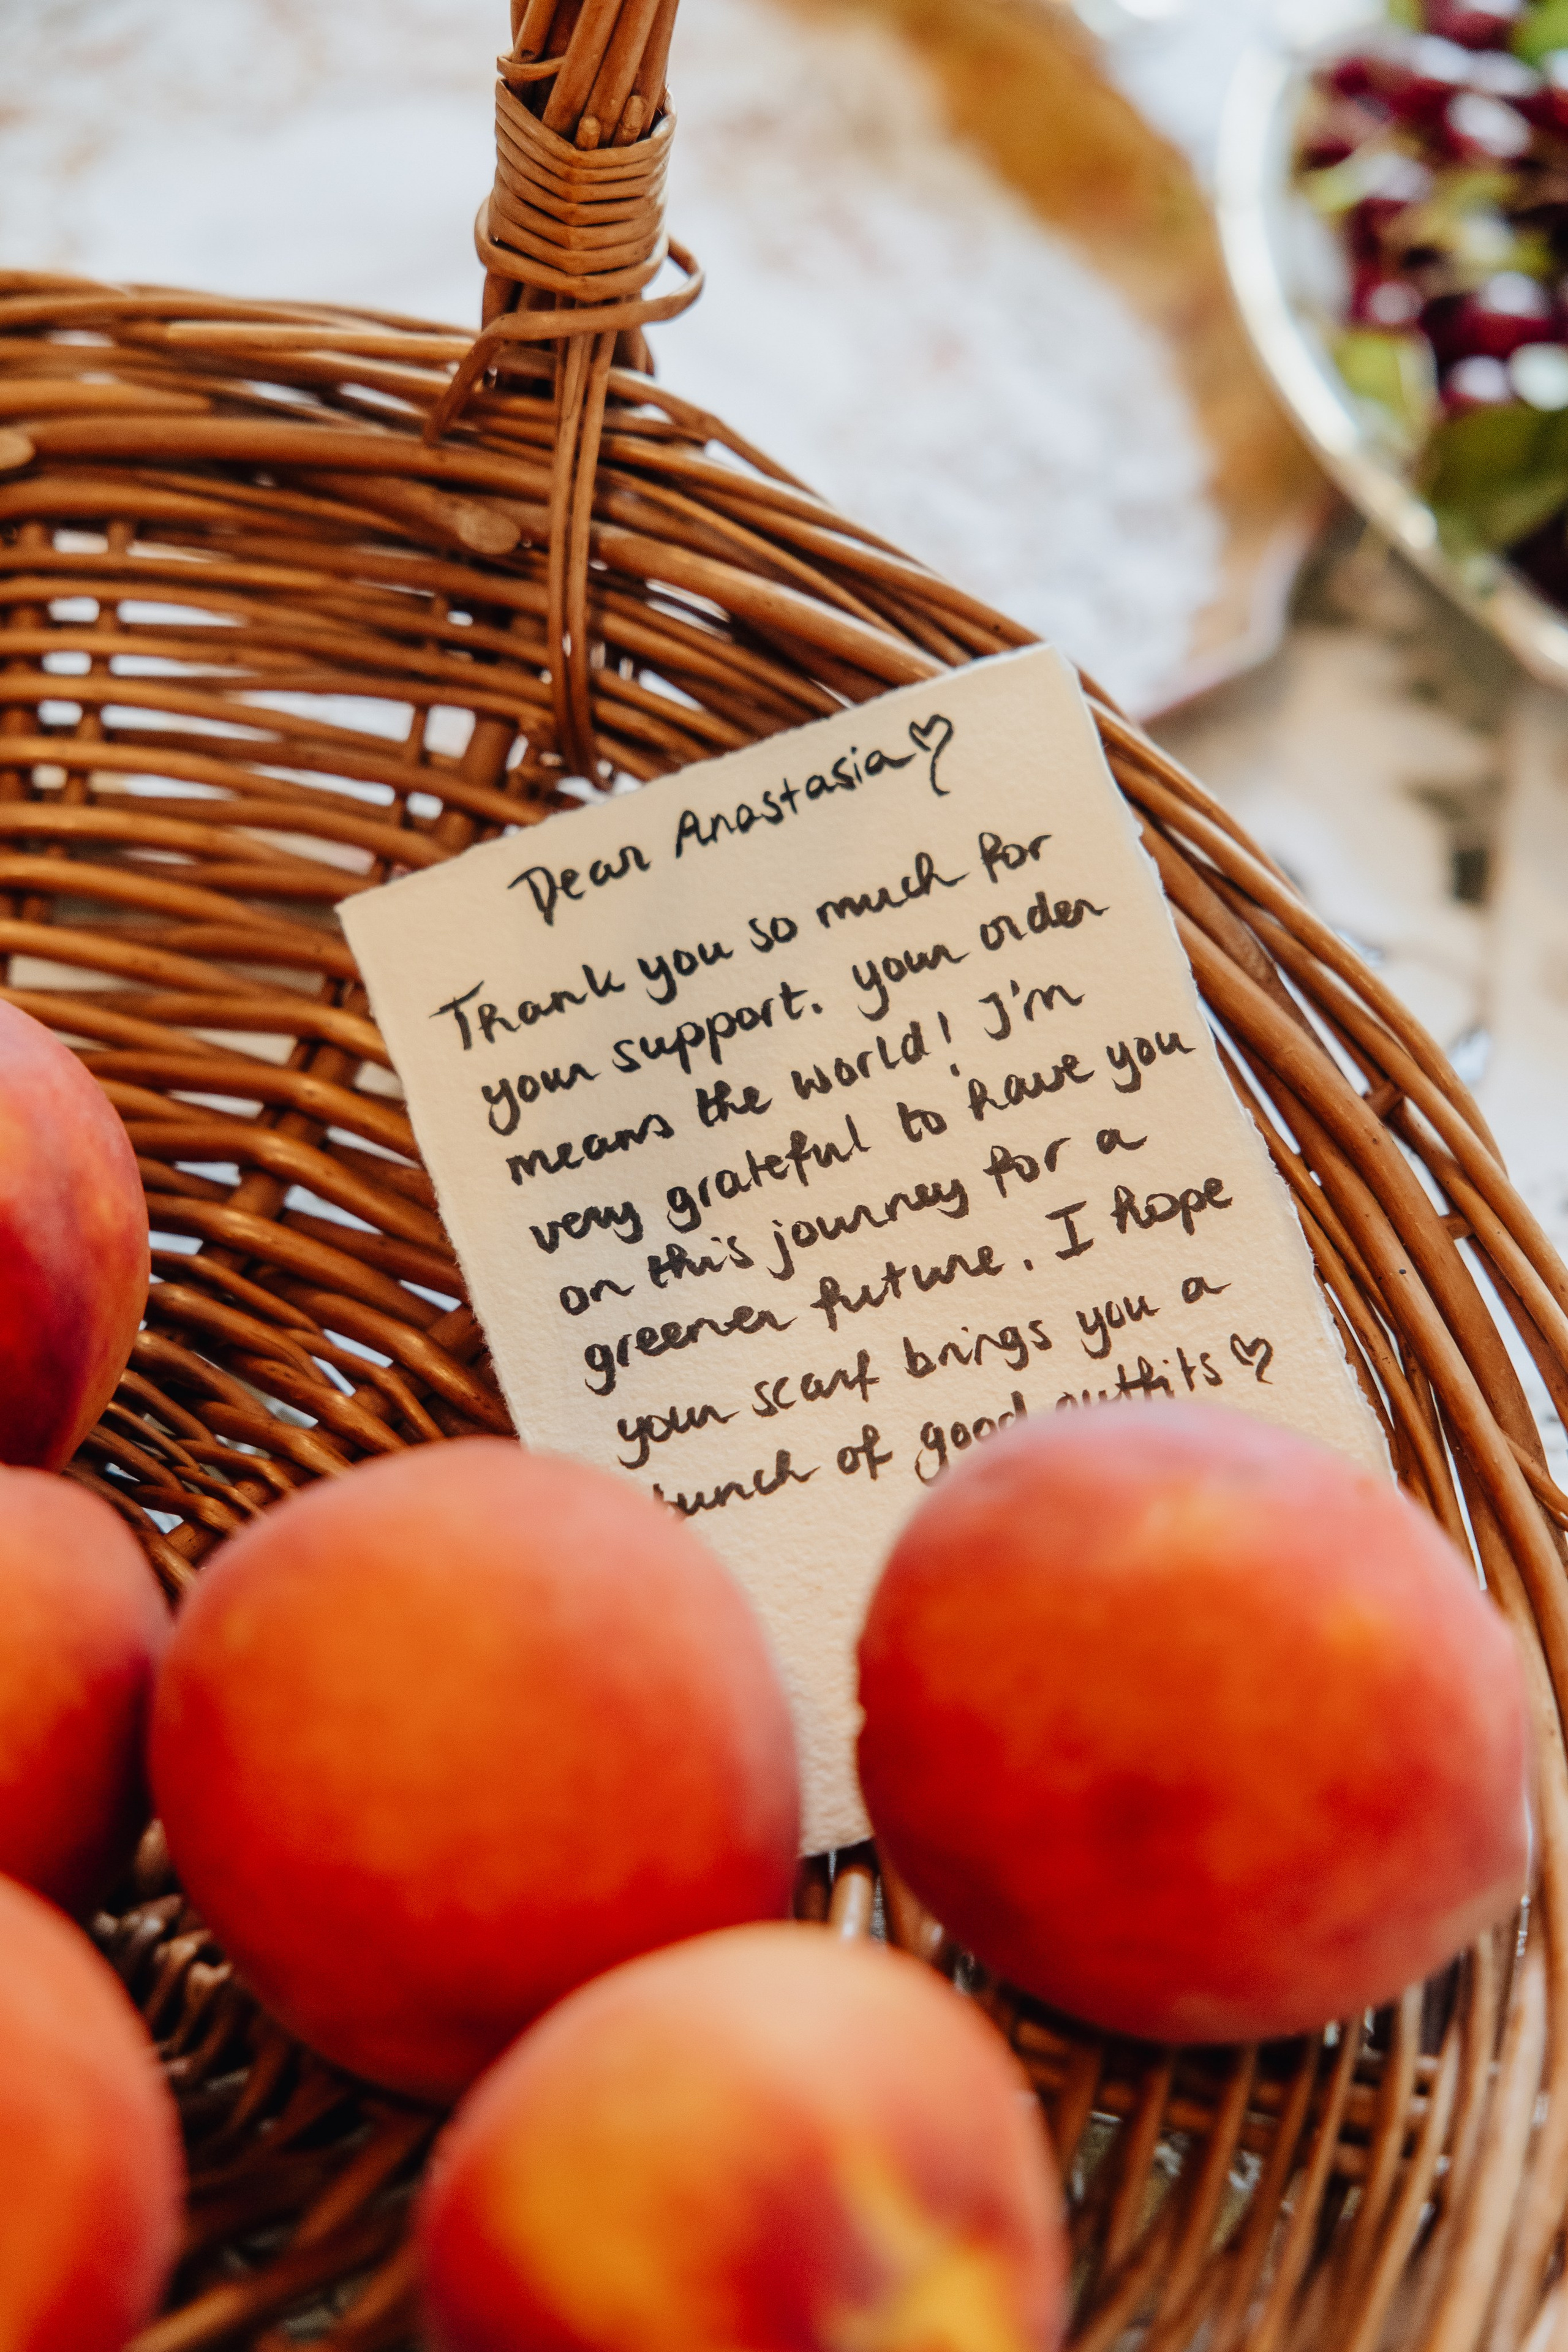 Dear Anastasia♡
Thank you so much for
your support. your order
means the world! I'm
very grateful to have you
on this journey for a
greener future. I hope
your scarf brings you a
bunch of good outfits♡